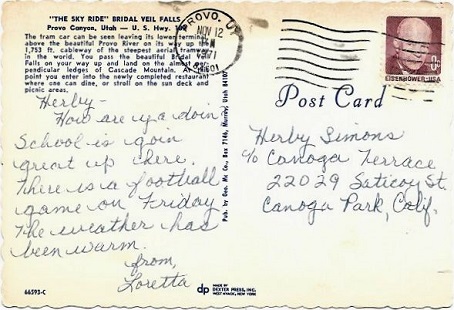 "THE SKY RIDE" BRIDAL VEIL FALLS
Provo Canyon, Utah — U. S. Hwy. 189
The tram car can be seen leaving its lower terminal
above the beautiful Provo River on its way up the
1,753 ft. cableway of the steepest aerial tramway
in the world. You pass the beautiful Bridal Veil
Falls on your way and land on the almost per-
pendicular ledges of Cascade Mountain. At this
point you enter into the newly completed restaurant
where one can dine, or stroll on the sun deck and
picnic areas.
Herby –
How are ya doin
School is goin
great up there.
There is a football
game on Friday
The weather has
been warm.
from,
Loretta
66593-C
Mc. Co., Box 7146, Murray, Utah 84107
dp
MADE BY
DEXTER PRESS, INC.
WEST NYACK, NEW YORK
PROVO, UT
NOV 12
PM
1971
84601
8¢
EISENHOWER·USA
Post Card
Herby Simons
c/o Canoga Terrace
22029 Saticoy St.
Canoga Park, Calif.